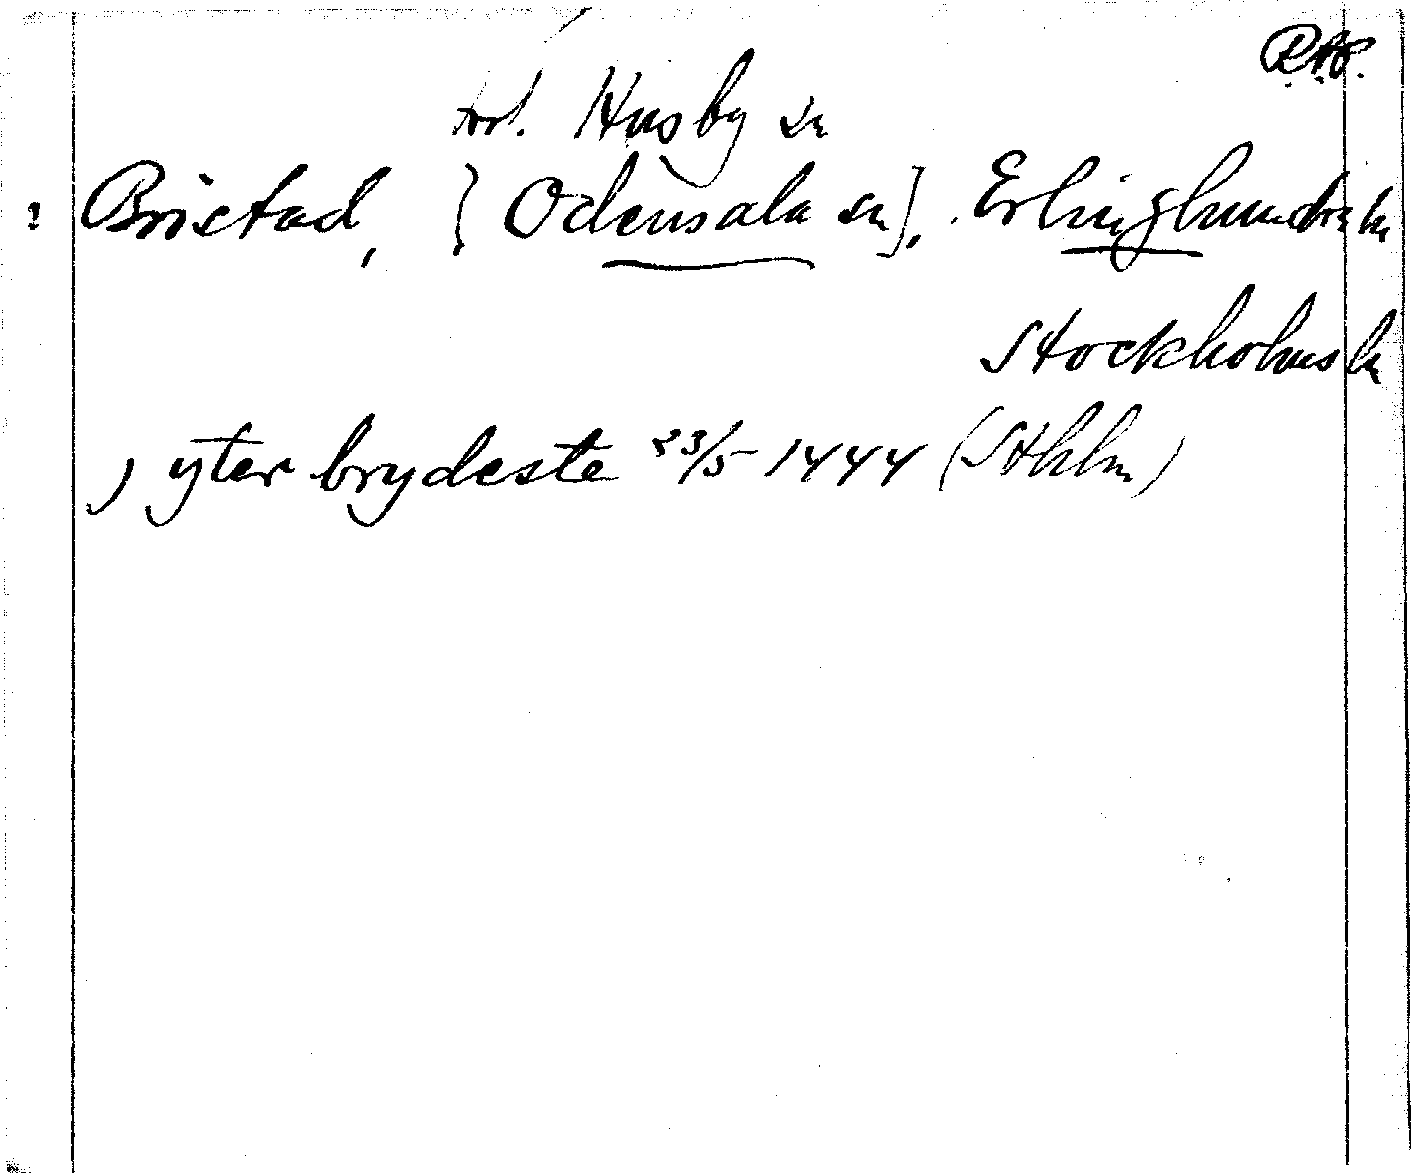 RAP.
tvl. Husby sn
? Bristad, [Odensala sn], Erlinghundra hd
Stockholms l.
) yter brydeste 23/5 1444 (Sthlm)